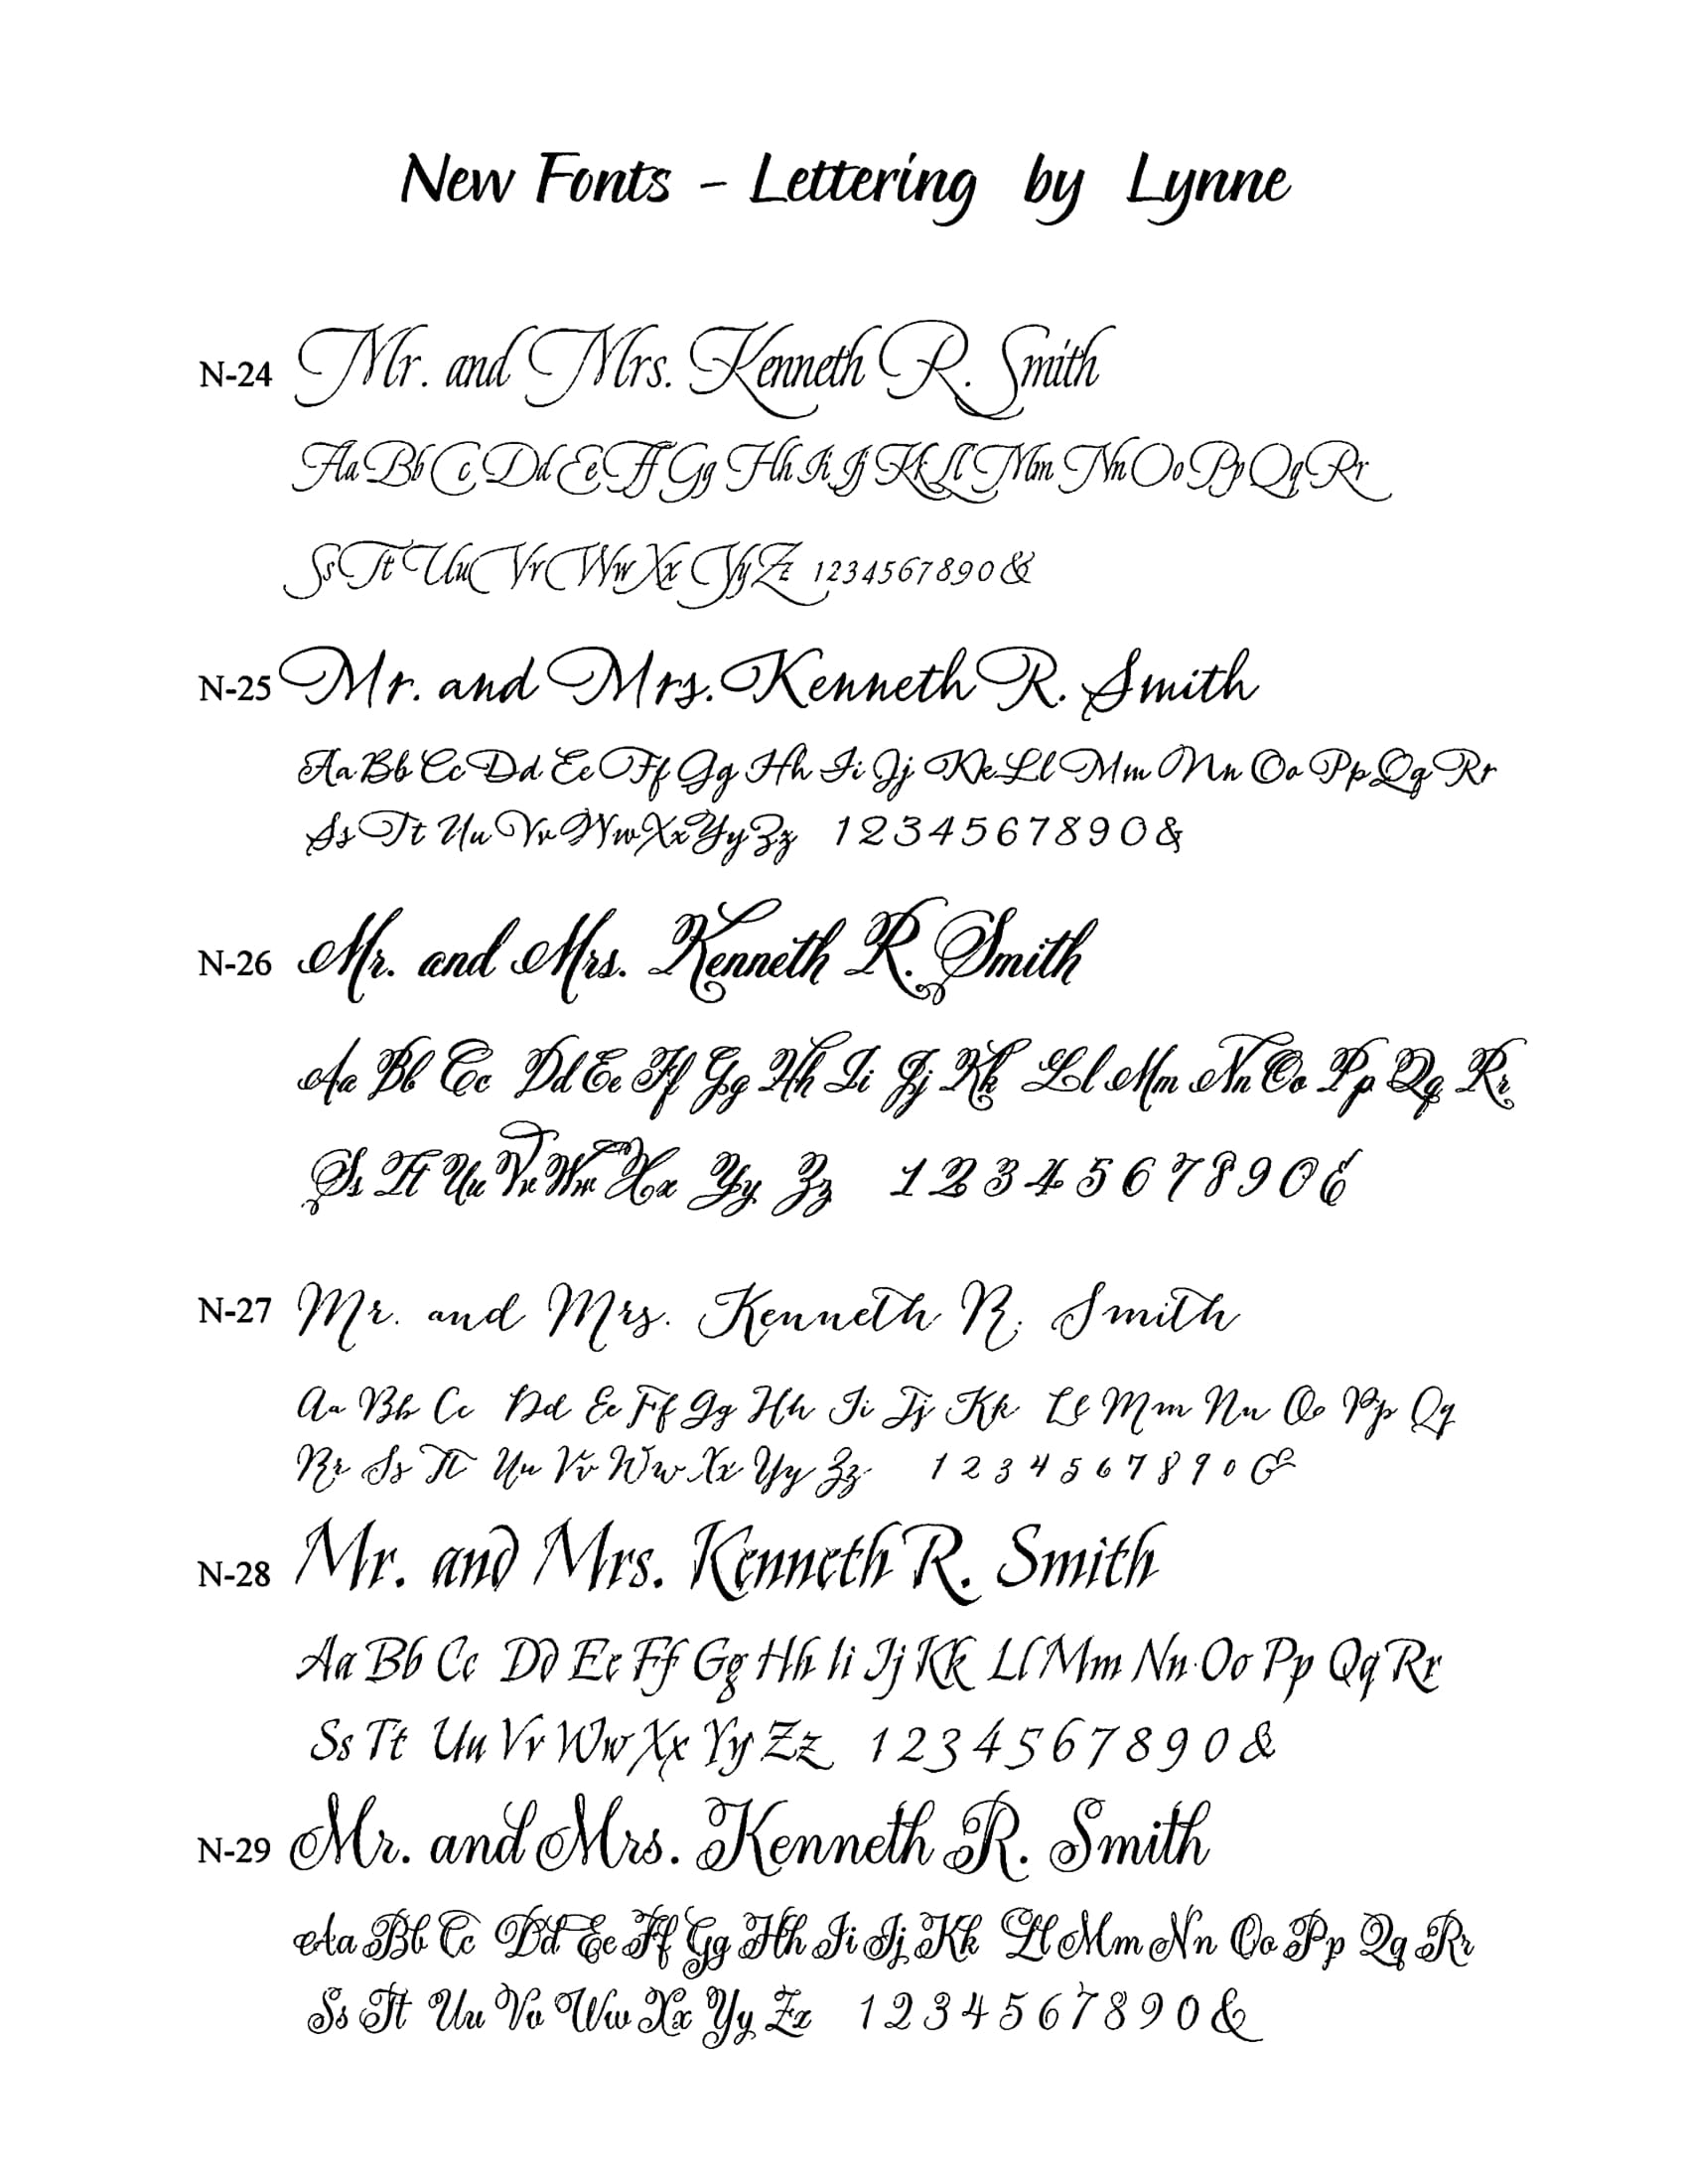 New Fonts - Lettering by Lynne
N-24 Mr. and Mrs. Kenneth R. Smith
Aa Bb Cc Dd Ee Ff Gg Hh Ii Jj Kk Ll Mm Nn Oo Pp Qq Rr
Ss Tt Uu Vv Ww Xx Yy Zz 1234567890 &
N-25 Mr. and Mrs. Kenneth R. Smith
Aa Bb Cc Dd Ee Ff Gg Hh Ii Jj Kk Ll Mm Nn Oo Pp Qq Rr
Ss Tt Uu Vv Ww Xx Yy Zz 1 2 3 4 5 6 7 8 9 0 &
N-26 Mr. and Mrs. Kenneth R. Smith
Aa Bb Cc Dd Ee Ff Gg Hh Ii Jj Kk Ll Mm Nn Oo Pp Qq Rr
Ss Tt Uu Vv Ww Xx Yy Zz 1 2 3 4 5 6 7 8 9 0 &
N-27 Mr. and Mrs. Kenneth R. Smith
Aa Bb Cc Dd Ee Ff Gg Hh Ii Jj Kk Ll Mm Nn Oo Pp Qq
Rr Ss Tt Uu Vv Ww Xx Yy Zz 1 2 3 4 5 6 7 8 9 0 &
N-28 Mr. and Mrs. Kenneth R. Smith
Aa Bb Cc Dd Ee Ff Gg Hh Ii Jj Kk Ll Mm Nn Oo Pp Qq Rr
Ss Tt Uu Vv Ww Xx Yy Zz 1 2 3 4 5 6 7 8 9 0 &
N-29 Mr. and Mrs. Kenneth R. Smith
Aa Bb Cc Dd Ee Ff Gg Hh Ii Jj Kk Ll Mm Nn Oo Pp Qq Rr
Ss Tt Uu Vv Ww Xx Yy Zz 1 2 3 4 5 6 7 8 9 0 &